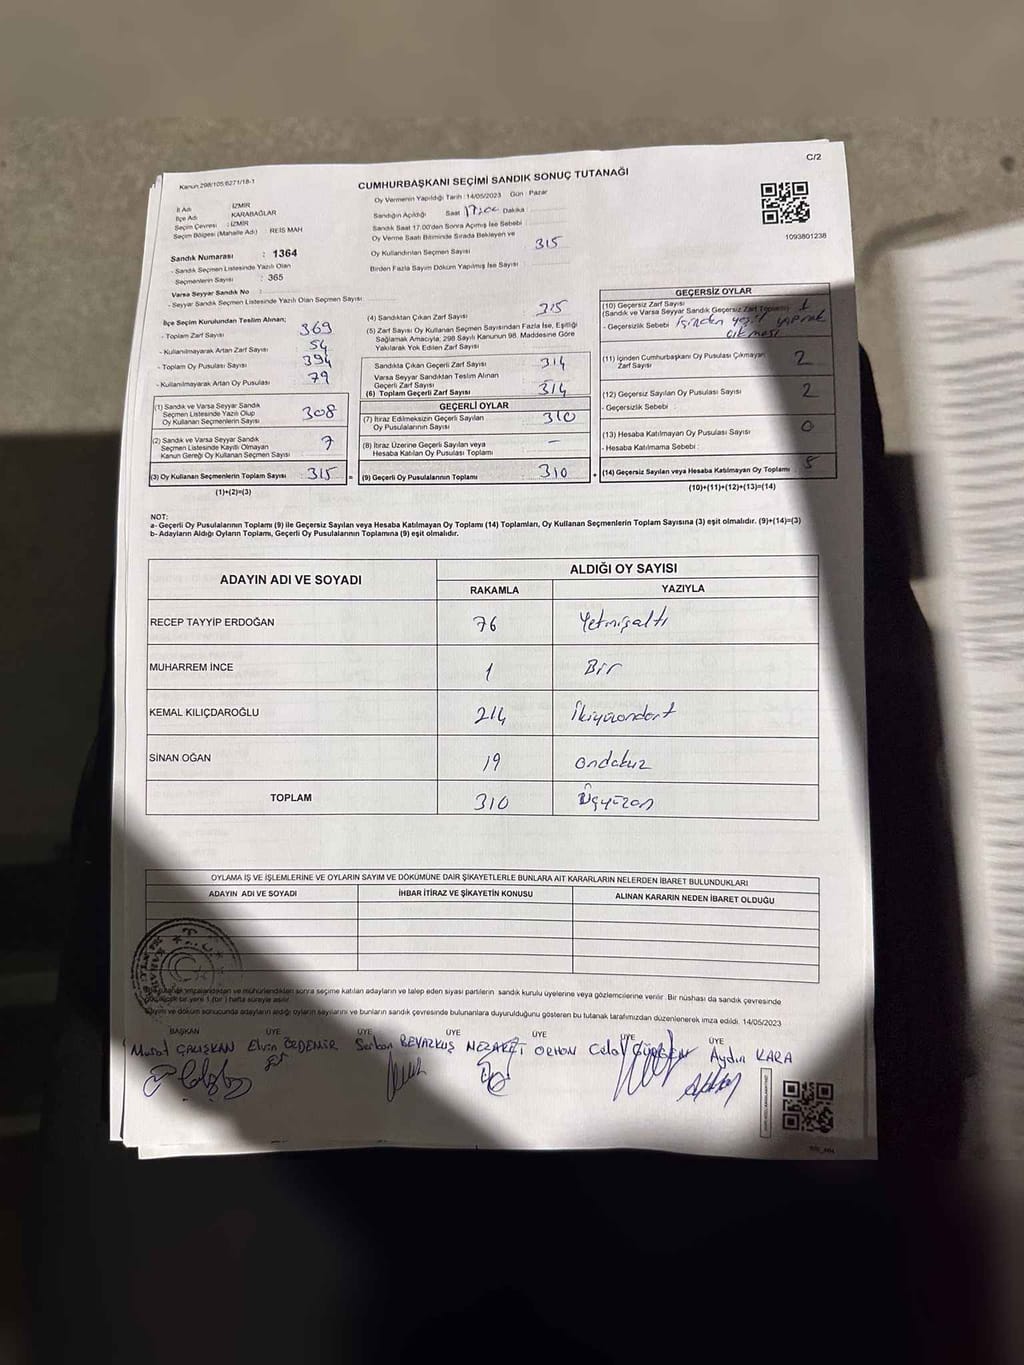 C/2
Kanun 298/105;6271/18-1
CUMHURBAŞKANI SEÇİMİ SANDIK SONUÇ TUTANAĞI
İl Adı : İZMİR
İlçe Adı : KARABAĞLAR
Seçim Çevresi : İZMİR
Seçim Bölgesi (Mahalle Adı) : REİS MAH
Sandık Numarası : 1364
- Sandık Seçmen Listesinde Yazılı Olan
Seçmenlerin Sayısı : 365
Varsa Seyyar Sandık No :
- Seyyar Sandık Seçmen Listesinde Yazılı Olan Seçmen Sayısı
Oy Vermenin Yapıldığı Tarih :14/05/2023 Gün : Pazar
Sandığın Açıldığı Saat 17:00 Dakika :
Sandık Saat 17:00'den Sonra Açılmış İse Sebebi :
Oy Verme Saati Bitiminde Sırada Bekleyen ve
Oy Kullandırılan Seçmen Sayısı : 315
Birden Fazla Sayım Döküm Yapılmış İse Sayısı :
1093801238
İlçe Seçim Kurulundan Teslim Alınan;
- Toplam Zarf Sayısı : 369
- Kullanılmayarak Artan Zarf Sayısı : 54
- Toplam Oy Pusulası Sayısı : 394
- Kullanılmayarak Artan Oy Pusulası : 79
(1) Sandık ve Varsa Seyyar Sandık
Seçmen Listesinde Yazılı Olup
Oy Kullanan Seçmenlerin Sayısı : 308
(2) Sandık ve Varsa Seyyar Sandık
Seçmen Listesinde Kayıtlı Olmayan
Kanun Gereği Oy Kullanan Seçmen Sayısı : 7
(3) Oy Kullanan Seçmenlerin Toplam Sayısı : 315
(1)+(2)=(3)
(4) Sandıktan Çıkan Zarf Sayısı : 315
(5) Zarf Sayısı Oy Kullanan Seçmen Sayısından Fazla İse, Eşitliği
Sağlamak Amacıyla; 298 Sayılı Kanunun 98. Maddesine Göre
Yakılarak Yok Edilen Zarf Sayısı :
Sandıkta Çıkan Geçerli Zarf Sayısı : 314
Varsa Seyyar Sandıktan Teslim Alınan
Geçerli Zarf Sayısı :
(6) Toplam Geçerli Zarf Sayısı : 314
GEÇERLİ OYLAR
(7) İtiraz Edilmeksizin Geçerli Sayılan
Oy Pusulalarının Sayısı : 310
(8) İtiraz Üzerine Geçerli Sayılan veya
Hesaba Katılan Oy Pusulası Toplamı : —
(9) Geçerli Oy Pusulalarının Toplamı : 310
GEÇERSİZ OYLAR
(10) Geçersiz Zarf Sayısı
(Sandık ve Varsa Seyyar Sandık Geçersiz Zarf Toplamı) : 1
- Geçersizlik Sebebi : İçinden yeşil yaprak
çıkması
(11) İçinden Cumhurbaşkanı Oy Pusulası Çıkmayan
Zarf Sayısı : 2
(12) Geçersiz Sayılan Oy Pusulası Sayısı : 2
- Geçersizlik Sebebi :
(13) Hesaba Katılmayan Oy Pusulası Sayısı : 0
- Hesaba Katılmama Sebebi :
(14) Geçersiz Sayılan veya Hesaba Katılmayan Oy Toplamı : 5
(10)+(11)+(12)+(13)=(14)
NOT:
a- Geçerli Oy Pusulalarının Toplamı (9) ile Geçersiz Sayılan veya Hesaba Katılmayan Oy Toplamı (14) Toplamları, Oy Kullanan Seçmenlerin Toplam Sayısına (3) eşit olmalıdır. (9)+(14)=(3)
b- Adayların Aldığı Oyların Toplamı, Geçerli Oy Pusulalarının Toplamına (9) eşit olmalıdır.
ADAYIN ADI VE SOYADI ALDIĞI OY SAYISI
RAKAMLA YAZIYLA
RECEP TAYYİP ERDOĞAN 76 Yetmişaltı
MUHARREM İNCE 1 Bir
KEMAL KILIÇDAROĞLU 214 İkiyüzondört
SİNAN OĞAN 19 ondokuz
TOPLAM 310 Üçyüzon
OYLAMA İŞ VE İŞLEMLERİNE VE OYLARIN SAYIM VE DÖKÜMÜNE DAİR ŞİKAYETLERLE BUNLARA AİT KARARLARIN NELERDEN İBARET BULUNDUKLARI
ADAYIN ADI VE SOYADI İHBAR İTİRAZ VE ŞİKAYETİN KONUSU ALINAN KARARIN NEDEN İBARET OLDUĞU
imzalandıktan ve mühürlendikten sonra seçime katılan adayların ve talep eden siyasi partilerin sandık kurulu üyelerine veya gözlemcilerine verilir. Bir nüshası da sandık çevresinde
bir yere 1 (bir) hafta süreyle asılır.
Sayım ve döküm sonucunda adayların aldığı oyların sayılarını ve bunların sandık çevresinde bulunanlara duyurulduğunu gösteren bu tutanak tarafımızdan düzenlenerek imza edildi. 14/05/2023
BAŞKAN ÜYE ÜYE ÜYE ÜYE ÜYE ÜYE
Murat ÇALIŞKAN Elvin ÖZDEMİR Serkan NEZAKET ORHON Celal Aydın KARA